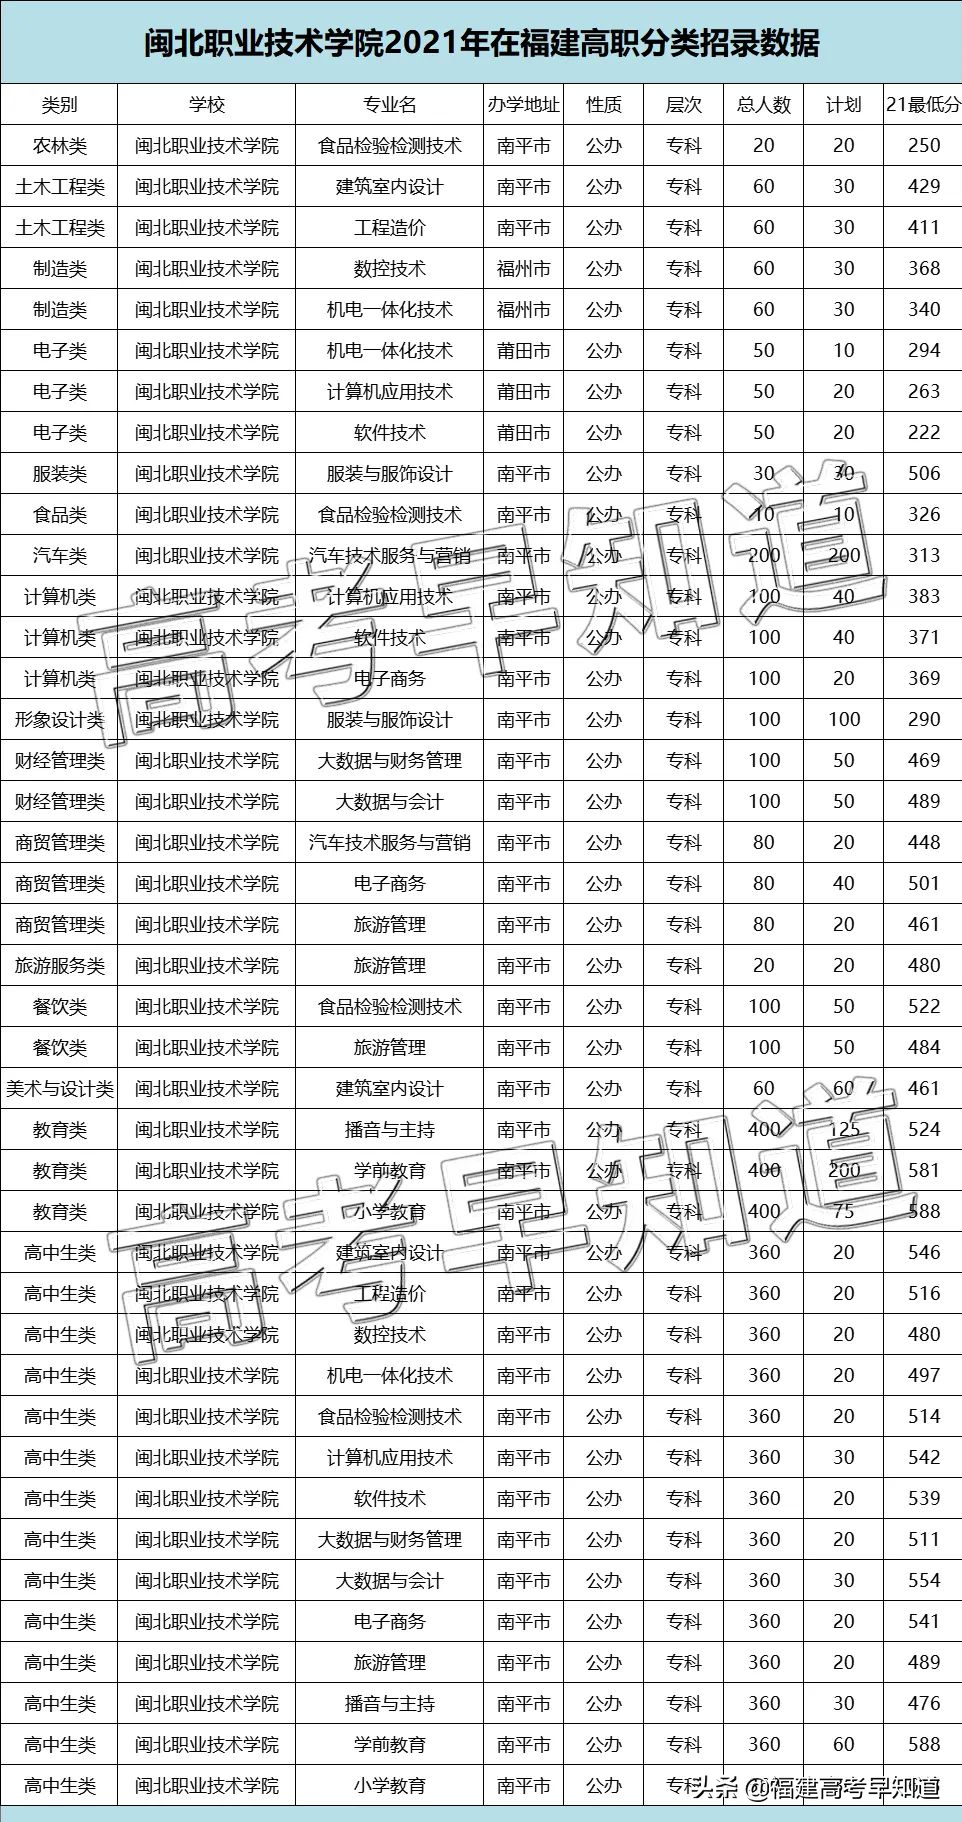 闽北职业技术学院2021年在福建高职分类招录数据
类别 学校 专业名 办学地址 性质 层次 总人数 计划 21最低分
农林类 闽北职业技术学院 食品检验检测技术 南平市 公办 专科 20 20 250
土木工程类 闽北职业技术学院 建筑室内设计 南平市 公办 专科 60 30 429
土木工程类 闽北职业技术学院 工程造价 南平市 公办 专科 60 30 411
制造类 闽北职业技术学院 数控技术 福州市 公办 专科 60 30 368
制造类 闽北职业技术学院 机电一体化技术 福州市 公办 专科 60 30 340
电子类 闽北职业技术学院 机电一体化技术 莆田市 公办 专科 50 10 294
电子类 闽北职业技术学院 计算机应用技术 莆田市 公办 专科 50 20 263
电子类 闽北职业技术学院 软件技术 莆田市 公办 专科 50 20 222
服装类 闽北职业技术学院 服装与服饰设计 南平市 公办 专科 30 30 506
食品类 闽北职业技术学院 食品检验检测技术 南平市 公办 专科 10 10 326
汽车类 闽北职业技术学院 汽车技术服务与营销 南平市 公办 专科 200 200 313
计算机类 闽北职业技术学院 计算机应用技术 南平市 公办 专科 100 40 383
计算机类 闽北职业技术学院 软件技术 南平市 公办 专科 100 40 371
计算机类 闽北职业技术学院 电子商务 南平市 公办 专科 100 20 369
形象设计类 闽北职业技术学院 服装与服饰设计 南平市 公办 专科 100 100 290
财经管理类 闽北职业技术学院 大数据与财务管理 南平市 公办 专科 100 50 469
财经管理类 闽北职业技术学院 大数据与会计 南平市 公办 专科 100 50 489
商贸管理类 闽北职业技术学院 汽车技术服务与营销 南平市 公办 专科 80 20 448
商贸管理类 闽北职业技术学院 电子商务 南平市 公办 专科 80 40 501
商贸管理类 闽北职业技术学院 旅游管理 南平市 公办 专科 80 20 461
旅游服务类 闽北职业技术学院 旅游管理 南平市 公办 专科 20 20 480
餐饮类 闽北职业技术学院 食品检验检测技术 南平市 公办 专科 100 50 522
餐饮类 闽北职业技术学院 旅游管理 南平市 公办 专科 100 50 484
美术与设计类 闽北职业技术学院 建筑室内设计 南平市 公办 专科 60 60 461
教育类 闽北职业技术学院 播音与主持 南平市 公办 专科 400 125 524
教育类 闽北职业技术学院 学前教育 南平市 公办 专科 400 200 581
教育类 闽北职业技术学院 小学教育 南平市 公办 专科 400 75 588
高中生类 闽北职业技术学院 建筑室内设计 南平市 公办 专科 360 20 546
高中生类 闽北职业技术学院 工程造价 南平市 公办 专科 360 20 516
高中生类 闽北职业技术学院 数控技术 南平市 公办 专科 360 20 480
高中生类 闽北职业技术学院 机电一体化技术 南平市 公办 专科 360 20 497
高中生类 闽北职业技术学院 食品检验检测技术 南平市 公办 专科 360 20 514
高中生类 闽北职业技术学院 计算机应用技术 南平市 公办 专科 360 30 542
高中生类 闽北职业技术学院 软件技术 南平市 公办 专科 360 20 539
高中生类 闽北职业技术学院 大数据与财务管理 南平市 公办 专科 360 20 511
高中生类 闽北职业技术学院 大数据与会计 南平市 公办 专科 360 30 554
高中生类 闽北职业技术学院 电子商务 南平市 公办 专科 360 20 541
高中生类 闽北职业技术学院 旅游管理 南平市 公办 专科 360 20 489
高中生类 闽北职业技术学院 播音与主持 南平市 公办 专科 360 30 476
高中生类 闽北职业技术学院 学前教育 南平市 公办 专科 360 60 588
高中生类 闽北职业技术学院 小学教育 南平市 公办 专科
高考早知道
高考早知道
头条 @福建高考早知道